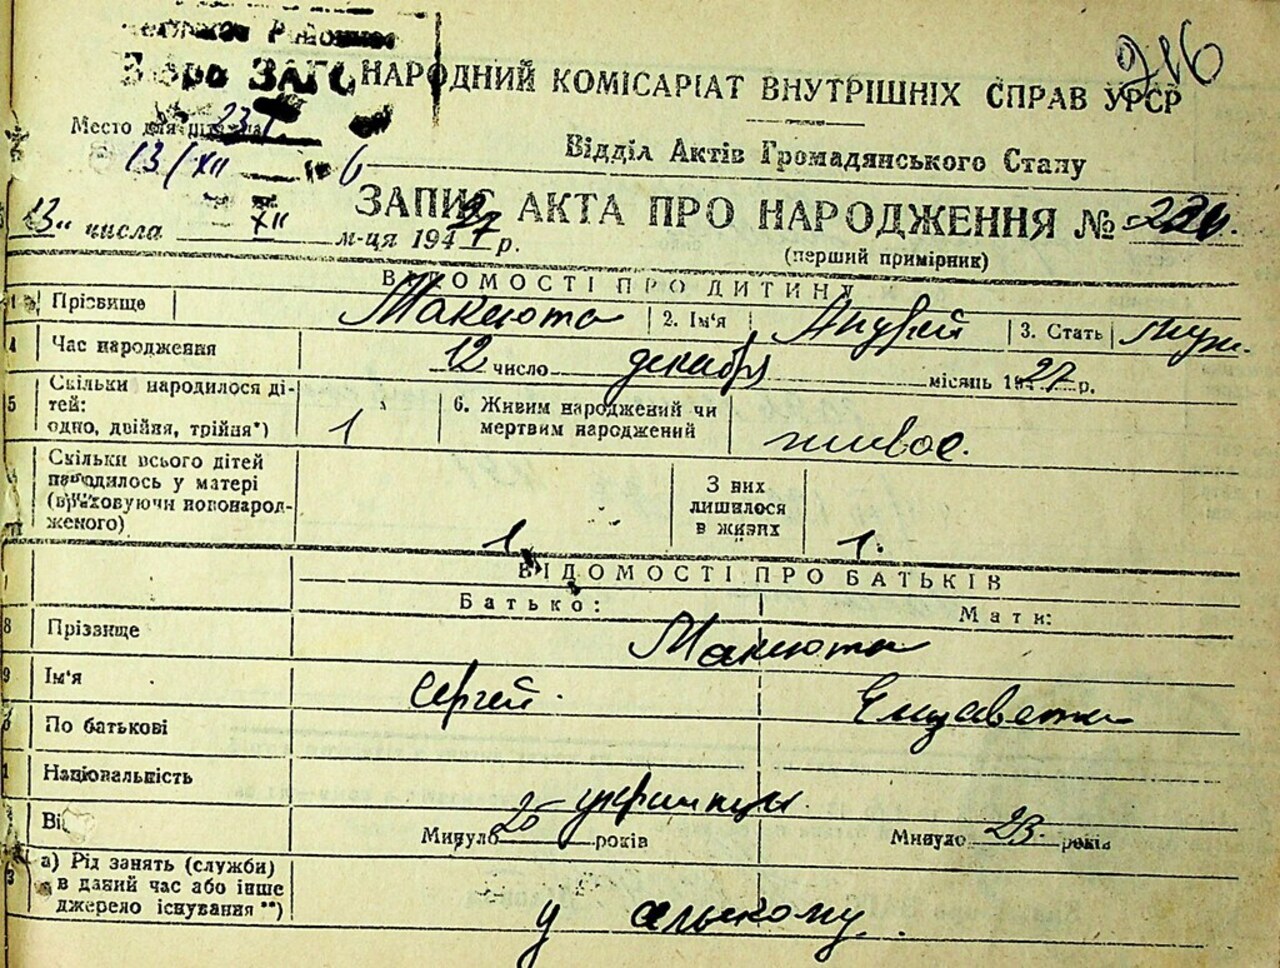 216
Бюро ЗАГС
НАРОДНИЙ КОМІСАРІАТ ВНУТРІШНІХ СПРАВ УРСР
Место для
13/XII 6
Відділ Актів Громадянського Стану
ЗАПИС АКТА ПРО НАРОДЖЕННЯ №
13" числа XII м-ця 194 р.
(перший примірник)
ВІДОМОСТІ ПРО ДИТИНУ
1 Прізвище Макиюта 2. Ім'я Андрей 3. Стать муж.
4 Час народження 12 число декабря місяць 1927 р.
5 Скільки народилося ді-
тей:
одно, двійня, трійня*) 1
6. Живим народжений чи
мертвим народжений живое.
Скільки всього дітей
народилось у матері
(враховуючи новонарод-
женого) 1.
З них
лишилося
в живих 1.
ВІДОМОСТІ ПРО БАТЬКІВ
Батько: Мати:
8 Прізвище Макиюта
9 Ім'я Сергей. Елизавета
По батькові
Національність украинцы.
Ві Минуло 26 років Минуло 23. років
а) Рід занять (служби)
в даний час або інше
джерело існування **) у